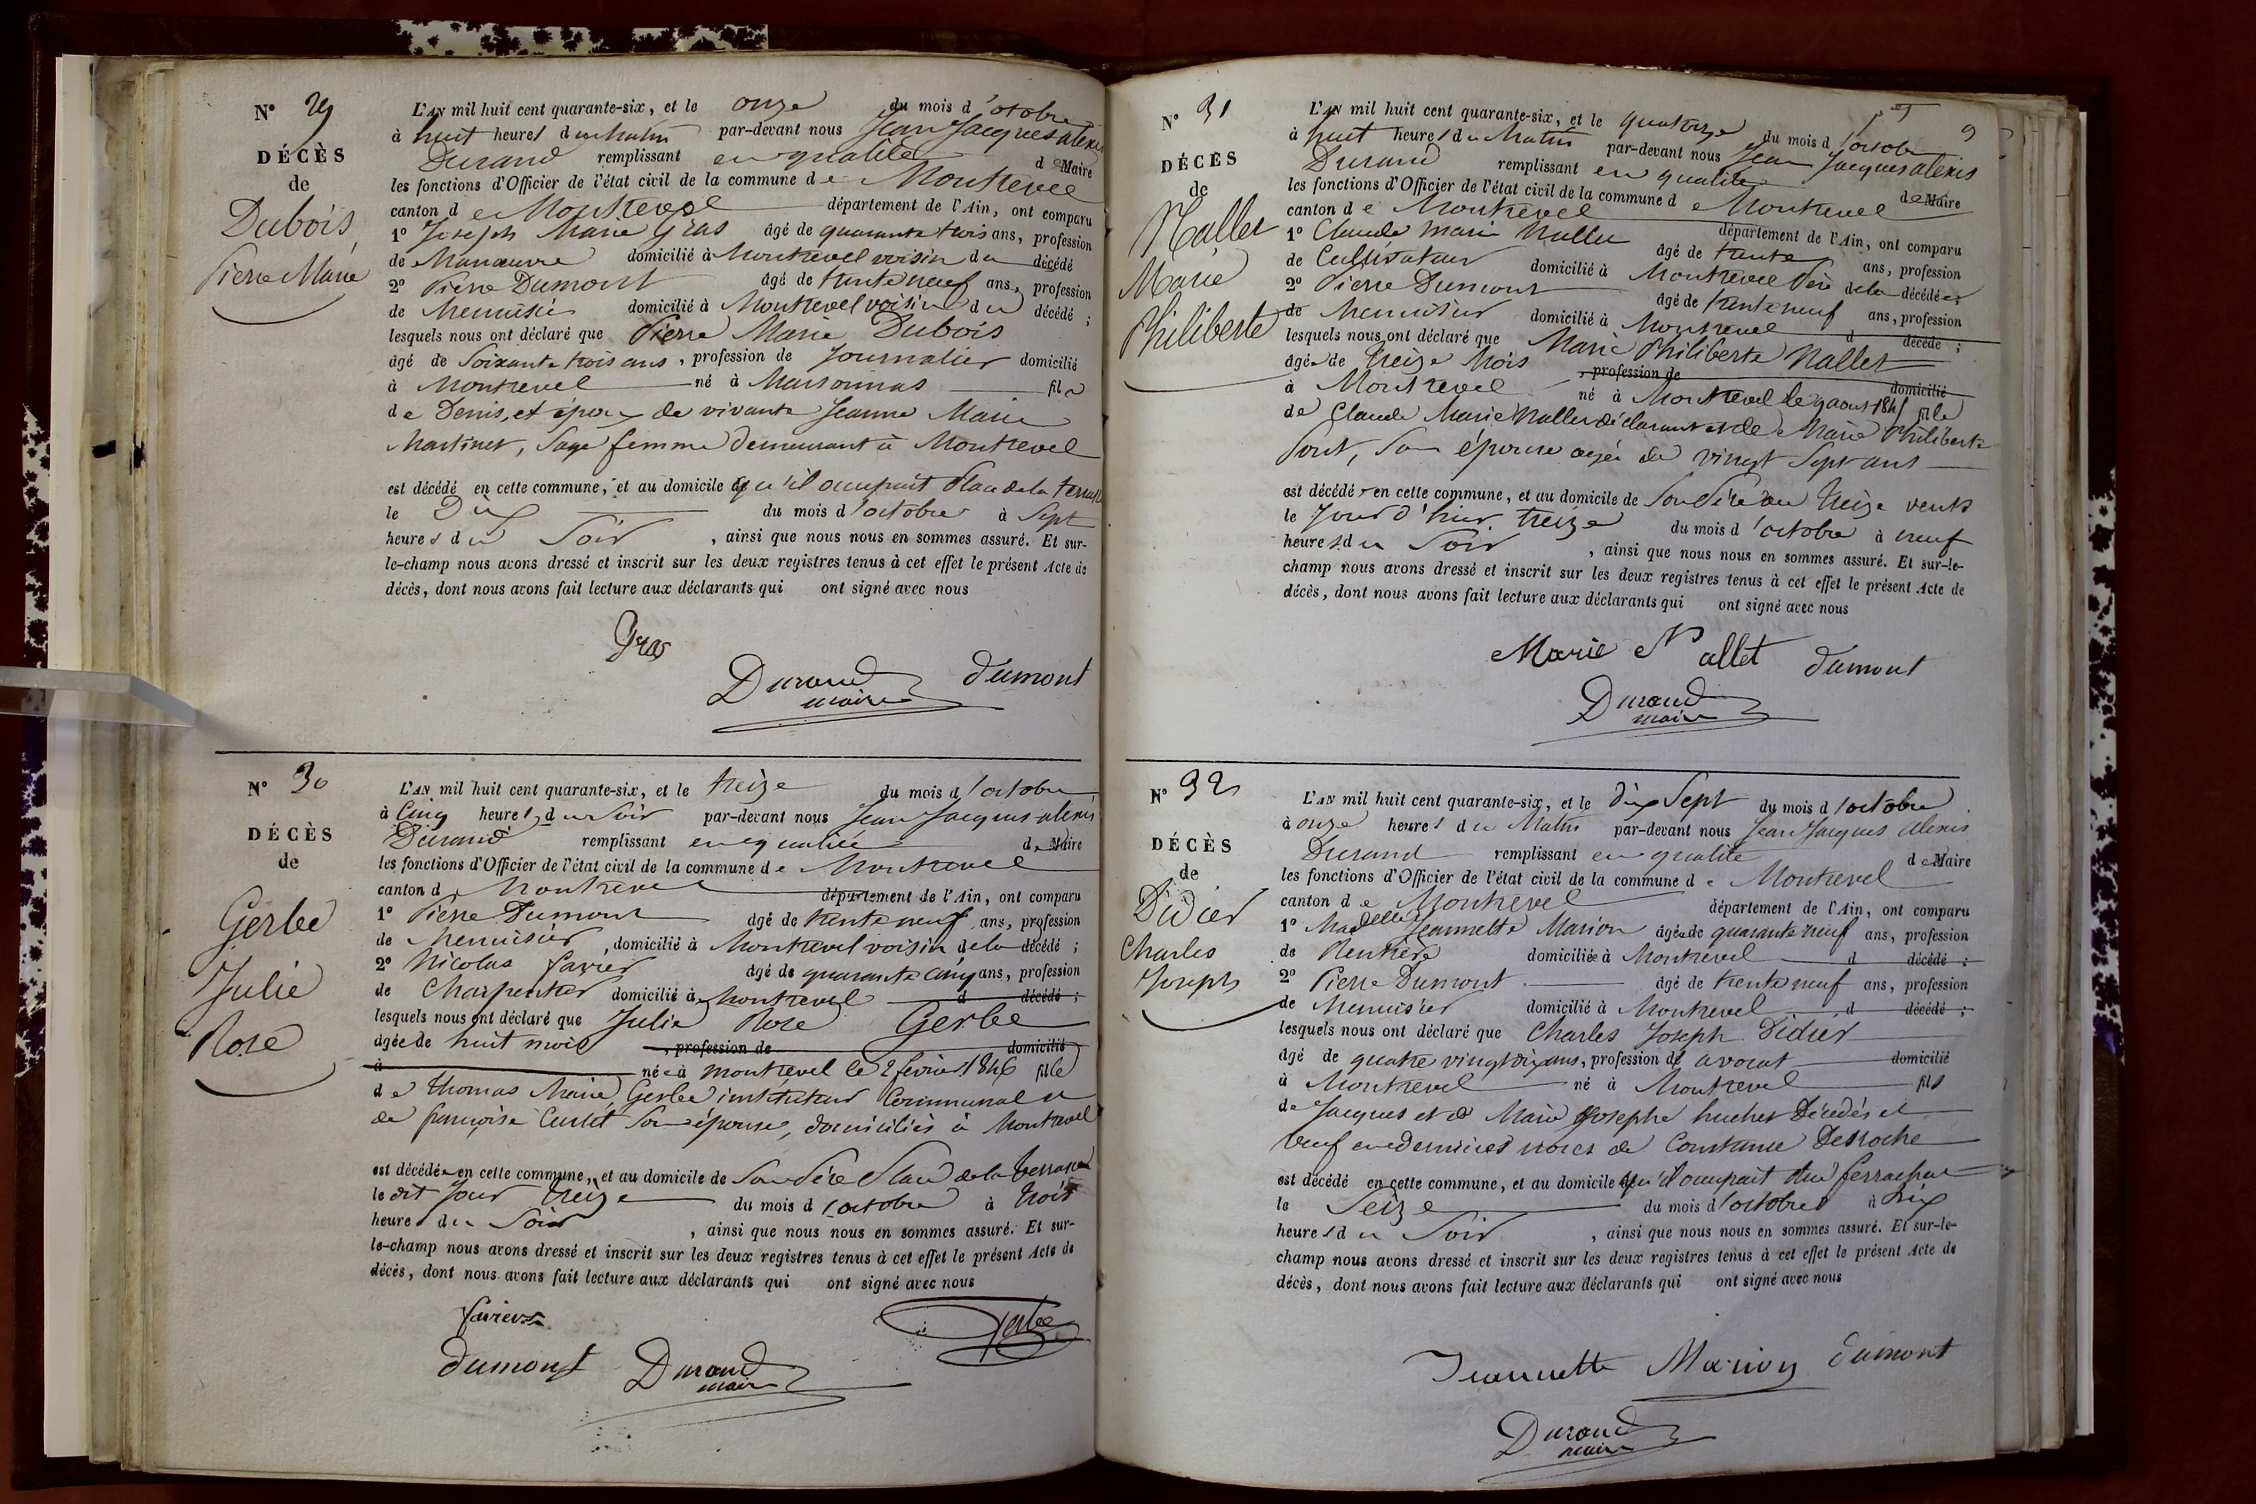 N° 29
DÉCÈS
de
Dubois
Pierre Marie
L'AN mil huit cent quarante-six, et le onze du mois d'octobre
à huit heures du matin par-devant nous Jean Jacques alexis
Durand remplissant en qualité de Maire
les fonctions d'Officier de l'état civil de la commune de Montrevel
canton de Montrevel département de l'Ain, ont comparu
1° Joseph Marie Gras âgé de quarante trois ans, profession
de Manœuvre domicilié à Montrevel voisin du décédé
2° Pierre Dumont âgé de trente neuf ans, profession
de Menuisier domicilié à Montrevel voisin du décédé ;
lesquels nous ont déclaré que Pierre Marie Dubois
âgé de soixante trois ans, profession de Journalier domicilié
à Montrevel né à Marsonnas fils
de Denis, et époux de vivante Jeanne Marie
Martinet, Sage femme demeurant à Montrevel
est décédé en cette commune, et au domicile qu'il occupait Place de la terrasse
le Dix du mois d'octobre à Sept
heures du Soir, ainsi que nous nous en sommes assuré. Et sur-
le-champ nous avons dressé et inscrit sur les deux registres tenus à cet effet le présent Acte de
décès, dont nous avons fait lecture aux déclarants qui ont signé avec nous
Gras
Durand dumont
maire
N° 30
DÉCÈS
de
Gerbe
Julie
Rose
L'AN mil huit cent quarante-six, et le treize du mois d'octobre
à Cinq heures du soir par-devant nous Jean Jacques alexis
Durand remplissant en qualité de Maire
les fonctions d'Officier de l'état civil de la commune de Montrevel
canton de Montrevel département de l'Ain, ont comparu
1° Pierre Dumont âgé de trente neuf ans, profession
de Menuisier, domicilié à Montrevel voisin de la décédé ;
2° Nicolas favier âgé de quarante cinq ans, profession
de Charpentier domicilié à Montrevel d décédé ;
lesquels nous ont déclaré que Julie Rose Gerbe
âgée de huit mois, profession de domicilié
à née à montrevel le 2 février 1846 fille
de thomas Marie Gerbe instituteur Communal et
de françoise Curtil Son épouse, domiciliés à Montrevel
est décédée en cette commune, et au domicile de Son Père Place de la terrasse
le dit jour treize du mois d'octobre à trois
heures du Soir, ainsi que nous nous en sommes assuré. Et sur-
le-champ nous avons dressé et inscrit sur les deux registres tenus à cet effet le présent Acte de
décès, dont nous avons fait lecture aux déclarants qui ont signé avec nous
favier Gerbe
dumont Durand
maire
N° 31
DÉCÈS
de
Nallet
Marie
Philiberte
L'AN mil huit cent quarante-six, et le quatorze du mois d'octobre
à huit heures du Matin par-devant nous Jean Jacques alexis
Durand remplissant en qualité de Maire
les fonctions d'Officier de l'état civil de la commune de Montrevel
canton de Montrevel département de l'Ain, ont comparu
1° Claude marie Nallet âgé de trente ans, profession
de Cultivateur domicilié à Montrevel Père de la décédée ;
2° Pierre Dumont âgé de trente neuf ans, profession
de Menuisier domicilié à Montrevel d décédé ;
lesquels nous ont déclaré que Marie Philiberte Nallet
âgée de treize Mois, profession de domicilié
à Montrevel né à Montrevel le 9 aout 1845 fille
de Claude Marie Nallet déclarant et de Marie Philiberte
Pont, Son épouse agée de vingt Sept ans
est décédée en cette commune, et au domicile de Son Père
le Jour d'hier treize du mois d'octobre à neuf
heures du Soir, ainsi que nous nous en sommes assuré. Et sur-le-
champ nous avons dressé et inscrit sur les deux registres tenus à cet effet le présent Acte de
décès, dont nous avons fait lecture aux déclarants qui ont signé avec nous
Marie Nallet dumont
Durand
maire
N° 32
DÉCÈS
de
Didier
Charles
Joseph
L'AN mil huit cent quarante-six, et le dix Sept du mois d'octobre
à onze heures du Matin par-devant nous Jean Jacques Alexis
Durand remplissant en qualité de Maire
les fonctions d'Officier de l'état civil de la commune de Montrevel
canton de Montrevel département de l'Ain, ont comparu
1° Madelle Jeannette Marion âgée de quarante neuf ans, profession
de Rentière domiciliée à Montrevel d décédé ;
2° Pierre Dumont âgé de trente neuf ans, profession
de Menuisier domicilié à Montrevel d décédé ;
lesquels nous ont déclaré que Charles Joseph Didier
âgé de quatre vingt dix ans, profession de avocat domicilié
à Montrevel né à Montrevel fils
de Jacques et de Marie Josephe huchet Décédés et
Veuf en dernières noces de Constance Desroche
est décédé en cette commune, et au domicile qu'il occupait
le Seize du mois d'octobre à Dix
heures du Soir, ainsi que nous nous en sommes assuré. Et sur-le-
champ nous avons dressé et inscrit sur les deux registres tenus à cet effet le présent Acte de
décès, dont nous avons fait lecture aux déclarants qui ont signé avec nous
Jeannette Marion dumont
Durand
maire